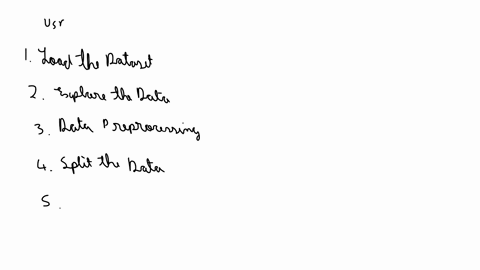 usr
1. Load the Dataset
2. Explore the Data
3. Data Preprocessing
4. Split the Data
5.